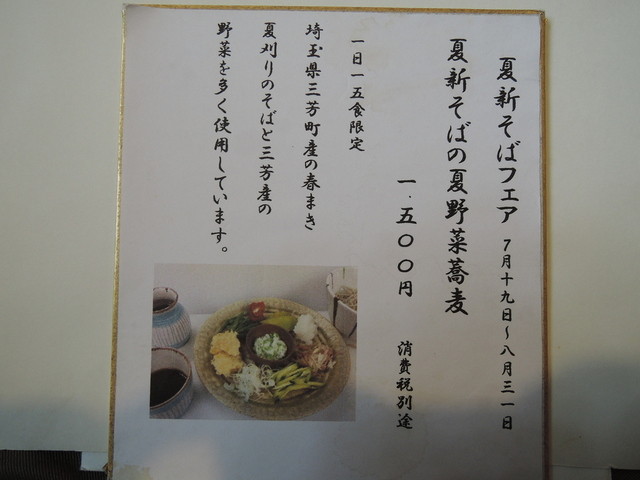 夏新そばフェア 7月十九日～八月三一日
夏新そばの夏野菜蕎麦
一.五〇〇円 消費税別途
一日一五食限定
埼玉県三芳町産の春まき
夏刈りのそばと三芳産の
野菜を多く使用しています。